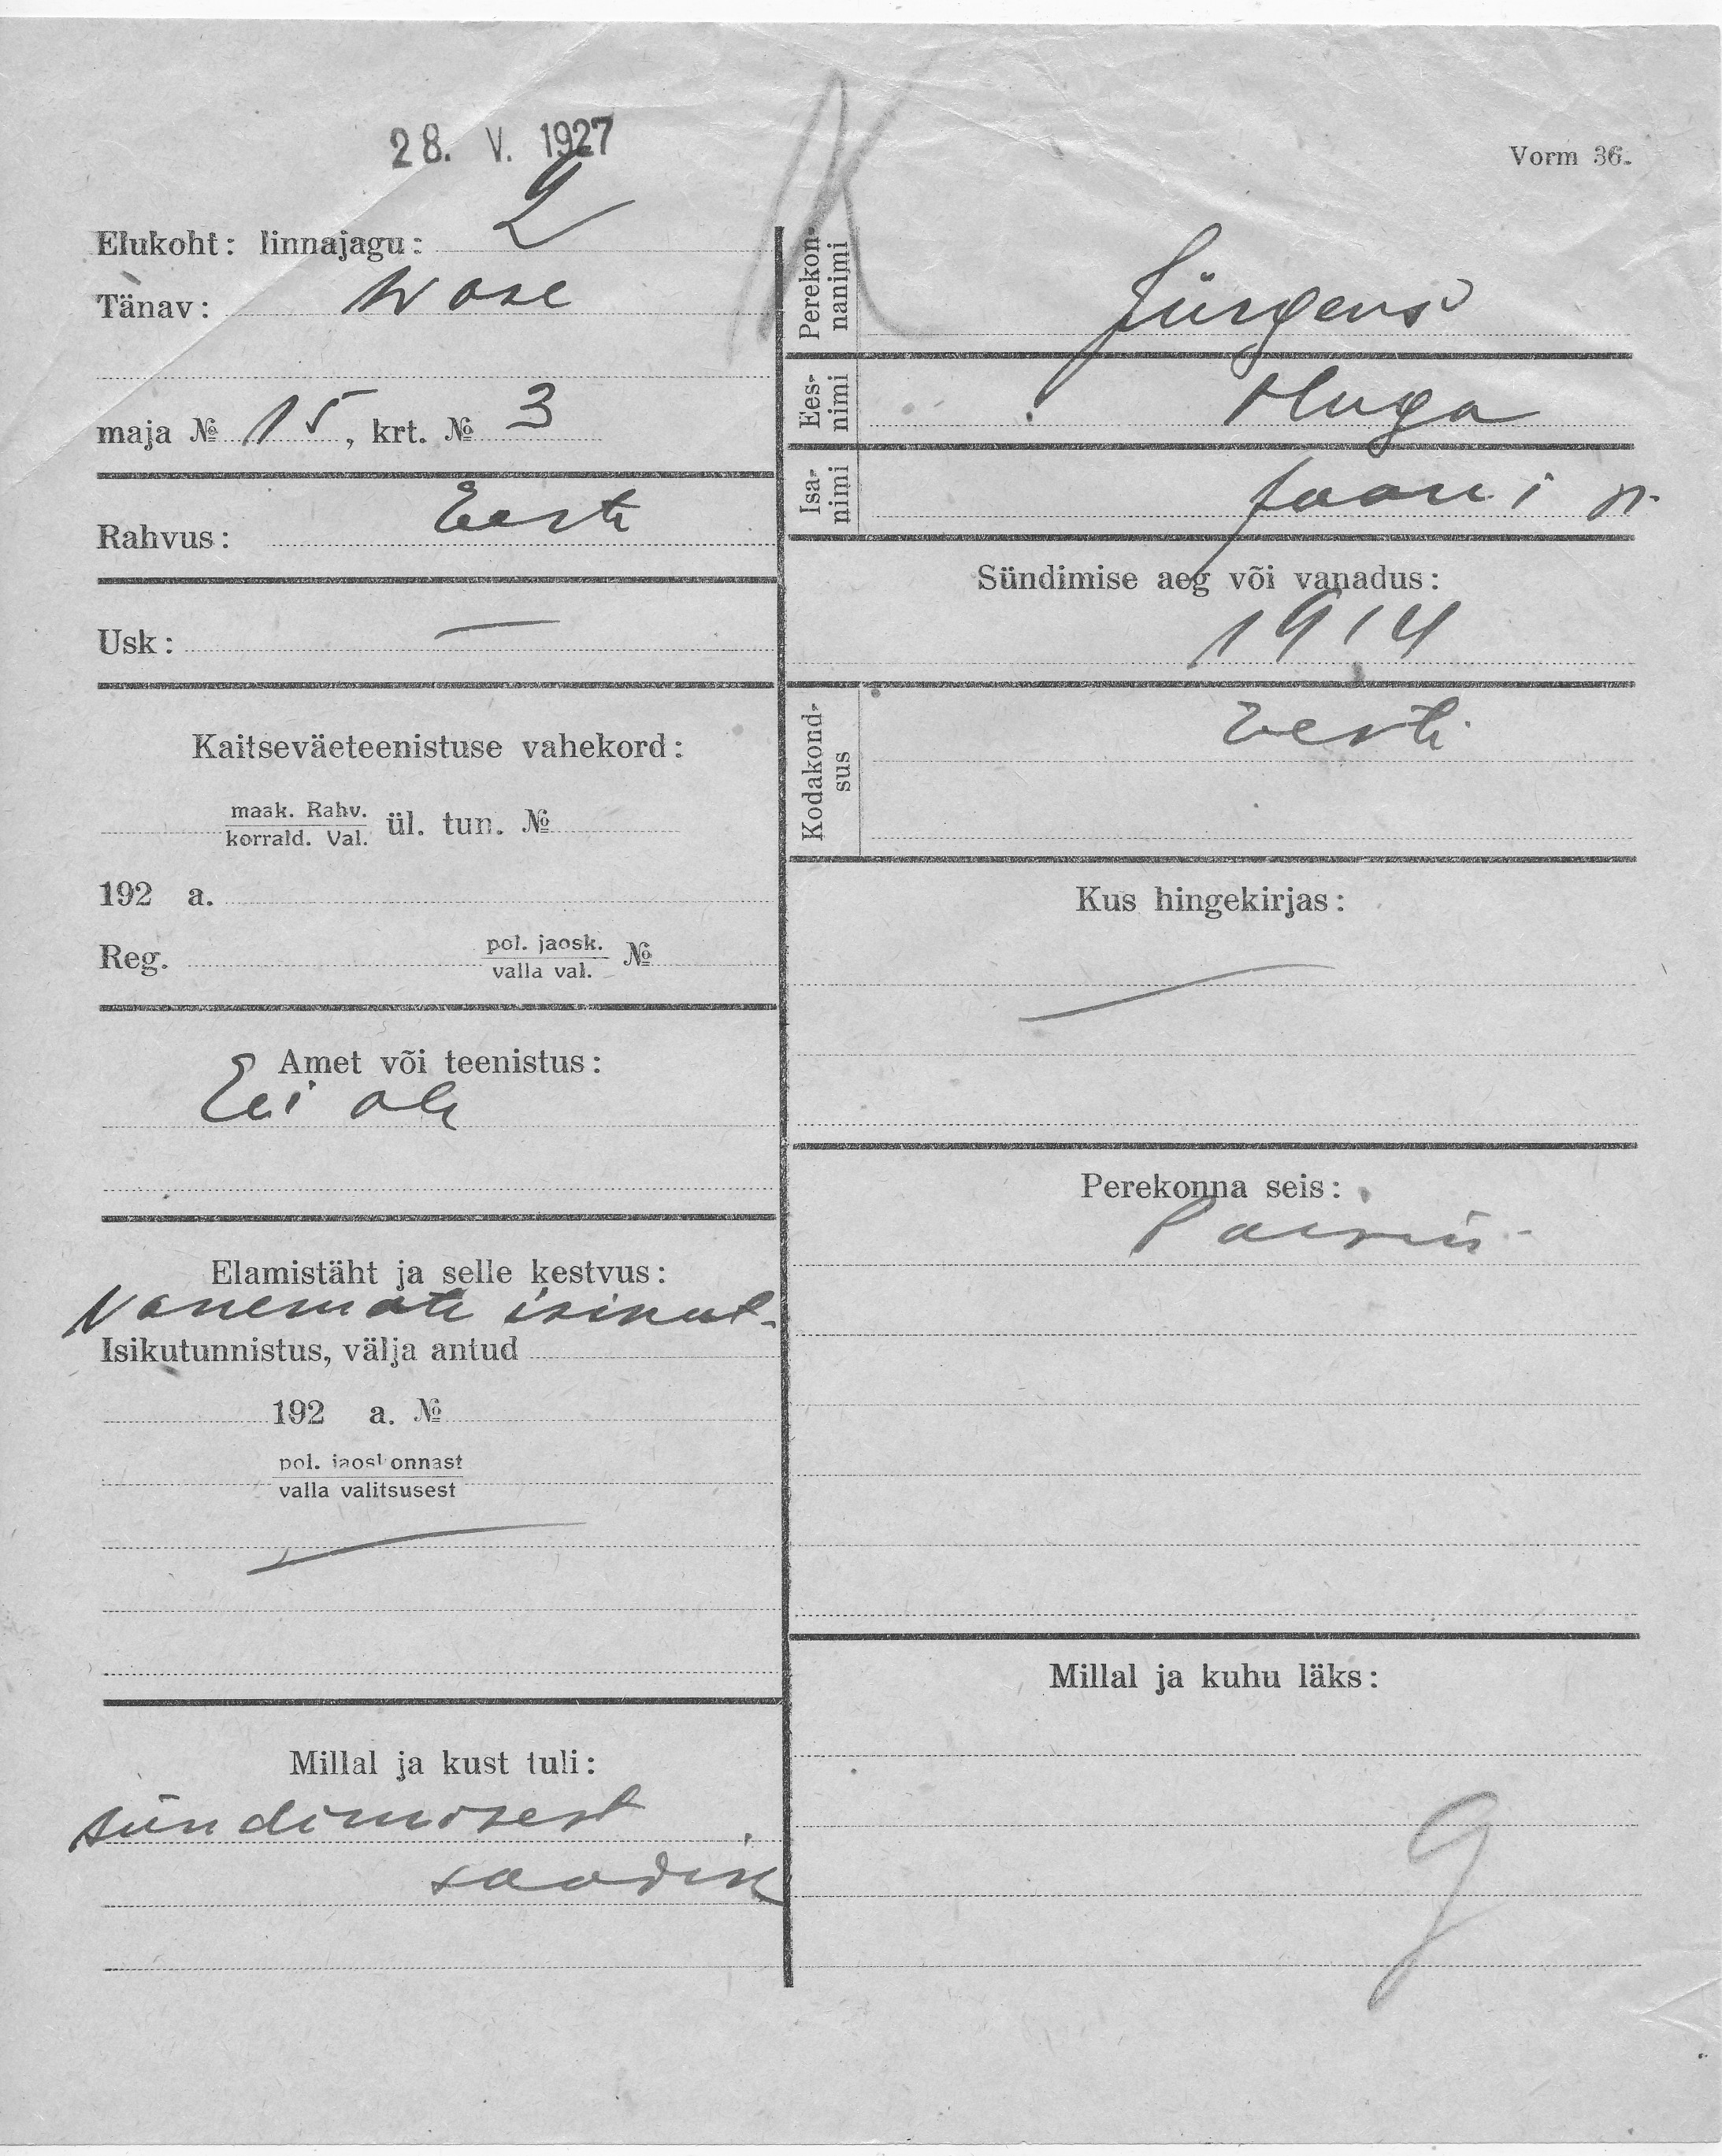 28. V. 1927
Vorm 36.
Elukoht: linnajagu: 2
Tänav: Wase
maja № 15, krt. № 3
Rahvus: Eesti
Usk: —
Kaitseväeteenistuse vahekord:
maak. Rahv.
korrald. Val. ül. tun. №
192 a.
Reg. pol. jaosk.
valla val. №
Amet või teenistus:
Ei ole
Elamistäht ja selle kestvus:
Vanemate isikut.
Isikutunnistus, välja antud
192 a. №
pol. jaoskonnast
valla valitsusest
—
Millal ja kust tuli:
sündimisest
saadik
Perekon-
nanimi Jürgens
Ees-
nimi Hugo
Isa-
nimi Jaani p.
Sündimise aeg või vanadus:
1914
Kodakond-
sus Eesti
Kus hingekirjas:
—
Perekonna seis:
Millal ja kuhu läks:
9